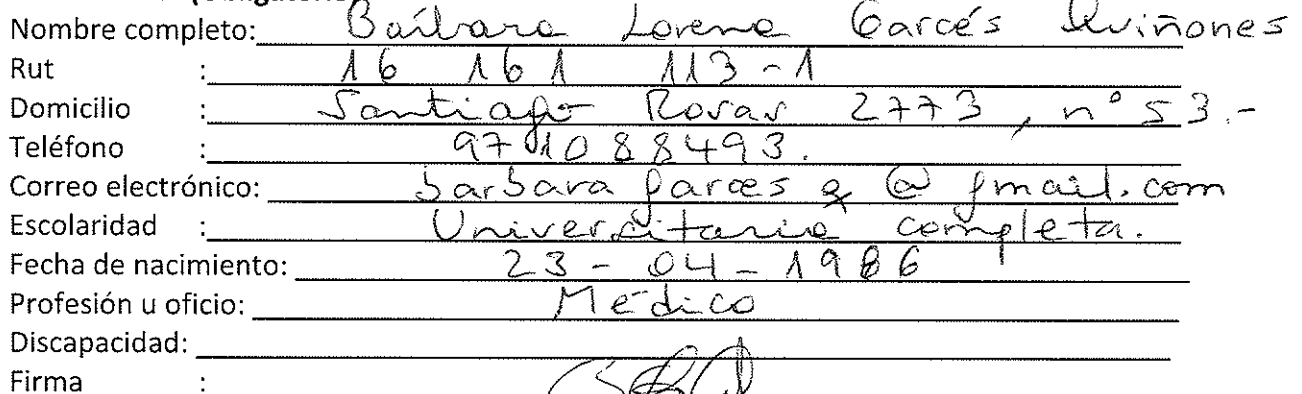 (Obligatorio)
Nombre completo: Bárbara Lorena Garcés Quiñones
Rut : 16 161 113-1
Domicilio : Santiago Rosas 2773, n° 53.-
Teléfono : 971088493.
Correo electrónico: barbara garces q @ gmail.com
Escolaridad : Universitaria completa.
Fecha de nacimiento: 23-04-1986
Profesión u oficio: Médico
Discapacidad:
Firma :